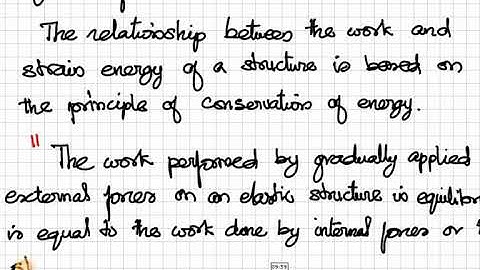 The relationship between the work and
strain energy of a structure is based on
the principle of conservation of energy.
"The work performed by gradually applied
external forces on an elastic structure in equilib
is equal to the work done by internal forces or
09:59